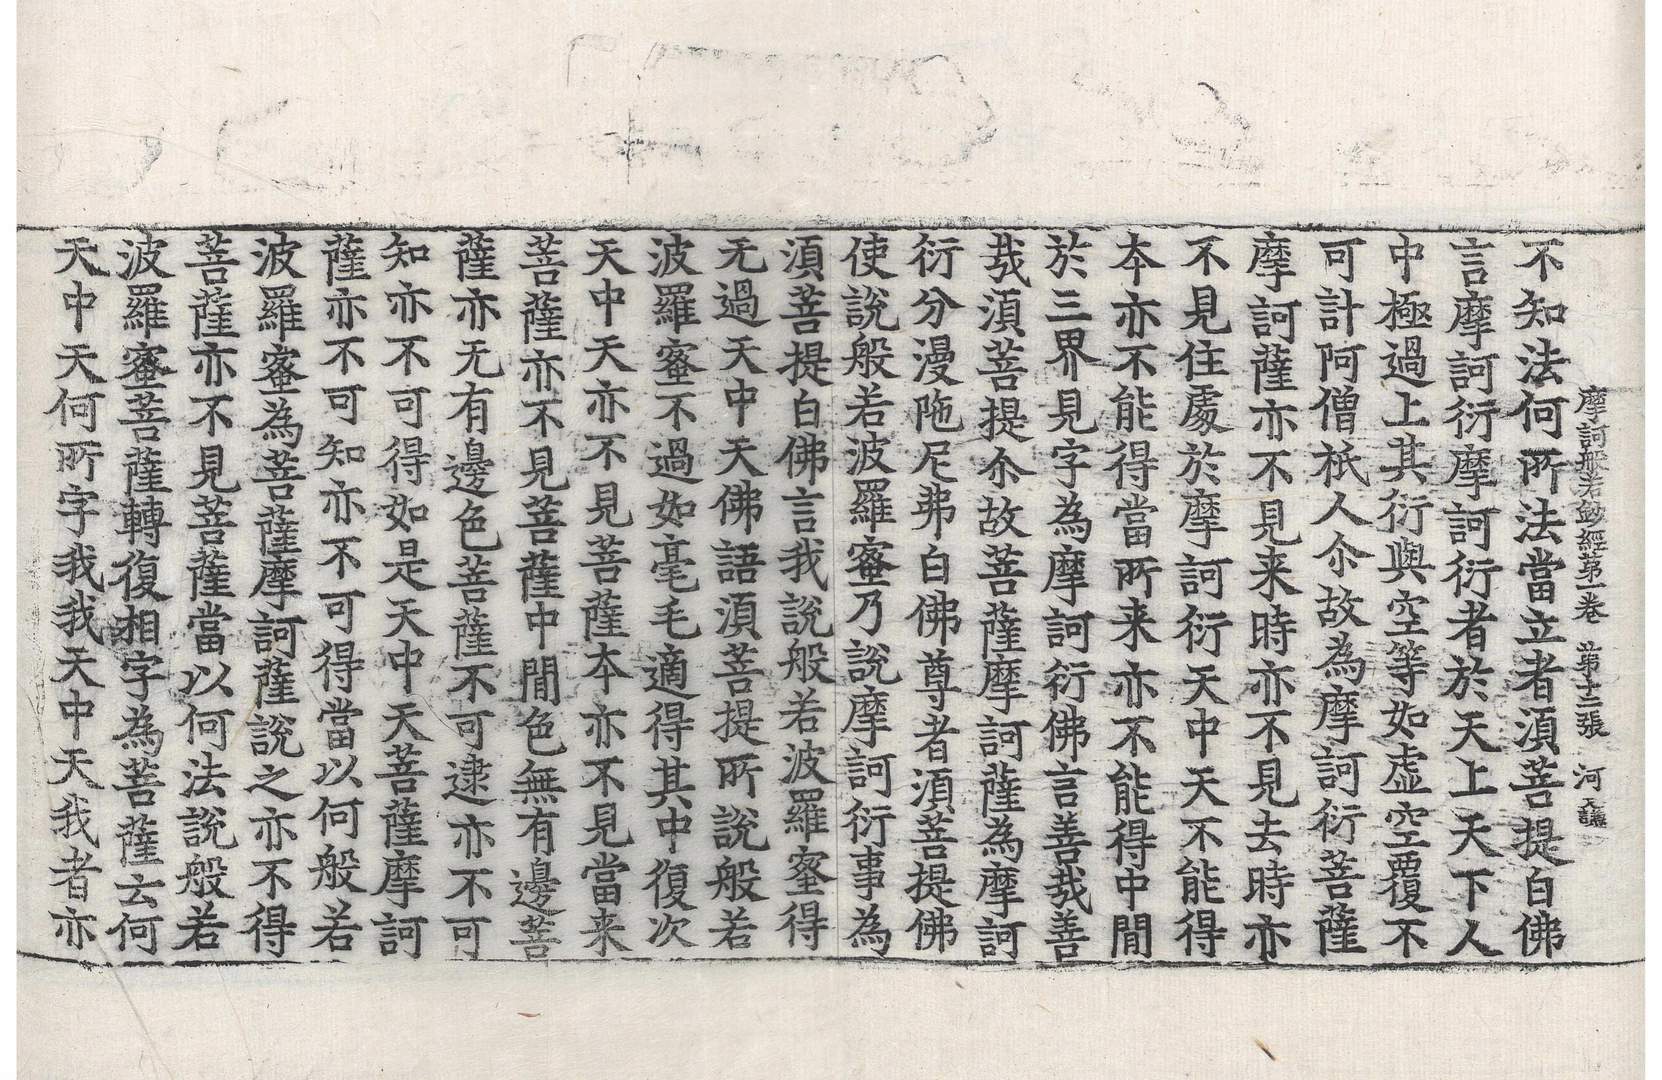 摩訶般若鈔經第一卷　第十三張　河
不知法何所法當立者湏菩提白佛
言摩訶衍摩訶衍者於天上天下人
中極過上其衍與空等如虚空覆不
可計阿僧祇人尒故為摩訶衍菩薩
摩訶薩亦不見来時亦不見去時亦
不見住處於摩訶衍天中天不能得
本亦不能得當所来亦不能得中閒
於三界見字為摩訶衍佛言善哉善
哉湏菩提尒故菩薩摩訶薩為摩訶
衍分漫陁尼弗白佛尊者湏菩提佛
使說般若波羅蜜乃說摩訶衍事為
湏菩提白佛言我說般若波羅蜜得
无過天中天佛語湏菩提所說般若
波羅蜜不過如毫毛適得其中復次
天中天亦不見菩薩本亦不見當来
菩薩亦不見菩薩中閒色無有邊菩
薩亦无有邊色菩薩不可逮亦不可
知亦不可得如是天中天菩薩摩訶
薩亦不可知亦不可得當以何般若
波羅蜜為菩薩摩訶薩說之亦不得
菩薩亦不見菩薩當以何法說般若
波羅蜜菩薩轉復相字為菩薩云何
天中天何所字我我天中天我者亦